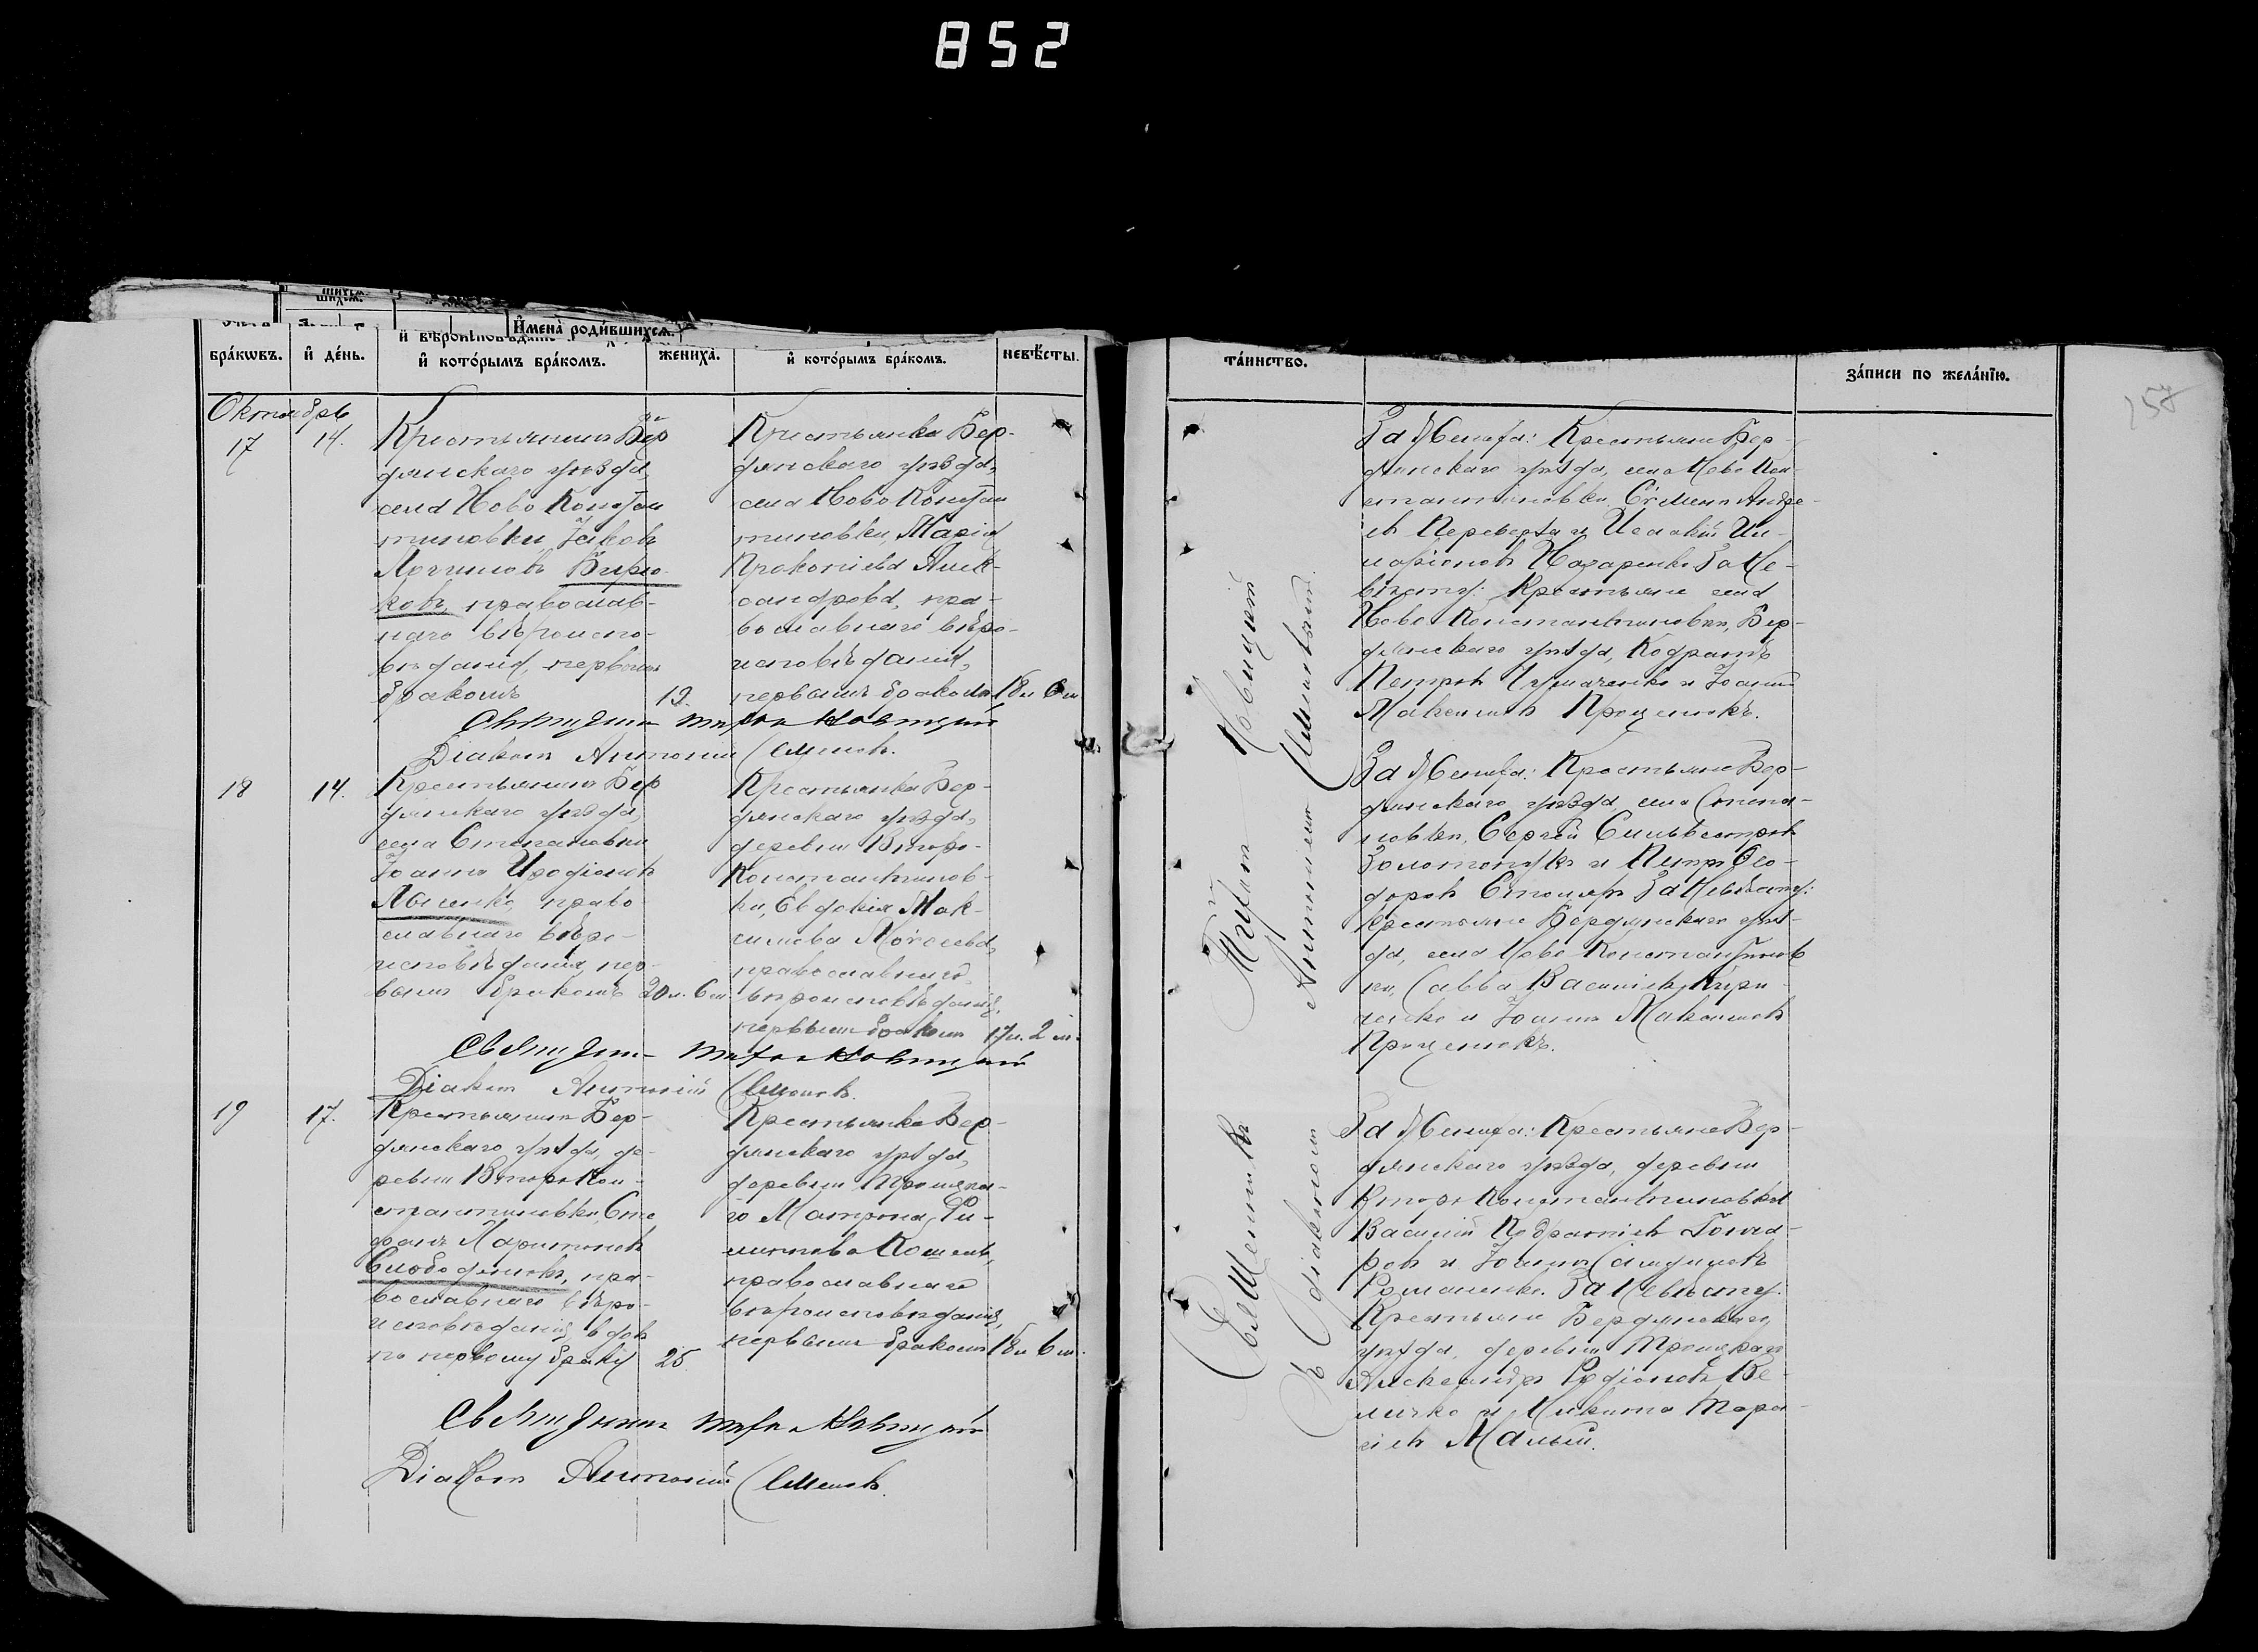 852
шихъя.
Имена родившихся.
бра́кωвъ.
и҆ де́нь.
и҆ кото́рымъ бра́комъ.
жениха̀.
и҆ кото́рымъ бра́комъ.
невѣ́сты.
Октябрь
17
14.
Крестьянинъ Бер
дянскаго уѣзда,
села Ново Констан
тиновки, Іаковъ
Логиновъ Бирю-
ковъ, православ-
наго вѣроиспо-
вѣданія, первымъ
бракомъ
19.
Крестьянка Бер-
дянскаго уѣзда,
села Ново Констан
тиновки, Марія
Прокопіева Алек-
сандрова, пра-
вославнаго вѣро-
исповѣданія,
первымъ бракомъ
18 л 6 м
Священникъ Тихон Новицкій
Діаконъ Антоній Семеновъ.
18
14.
Крестьянинъ Бер
дянскаго уѣзда,
села Степановки
Іоаннъ Иродіоновъ
Яценко, право
славнаго вѣро-
исповѣданія, пер-
вымъ бракомъ
20 л. 6 м
Крестьянка Бер-
дянскаго уѣзда,
деревни Второ-
Константинов-
ки, Евдокія Мак-
симова Моѵсеева,
православнаго
вѣроисповѣданія,
первымъ бракомъ
17 л. 2 м.
Священникъ Тихон Новицкій
Діаконъ Антоній Семеновъ.
19
17.
Крестьянинъ Бер-
дянскаго уѣзда, де-
ревни Второ Кон-
стантиновки, Сте
фанъ Харитоновъ
Слободянюкъ, пра-
вославнаго вѣро-
исповѣданія, вдов
по первому браку
25.
Крестьянка Бер-
дянскаго уѣзда,
деревни Троицка-
го Матрона
православнаго
вѣроисповѣданія,
первымъ бракомъ
18 л 6 м.
Священникъ Тихон Новицкій
Діаконъ Антоній Семеновъ.
та́инство.
за́писи по жела́нїю.
Священникъ Тихонъ Новицкій
съ діакономъ Антоніемъ Семеновымъ.
За Жениха: Крестьяне Бер-
дянскаго уѣзда, села Ново Кон-
стантиновки, Сѵмеонъ Андре-
евъ и Исаакій Ил-
ларіоновъ Назаренко За Не-
вѣсту: Крестьяне села
Ново Константиновки, Бер-
дянскаго уѣзда, Кодратъ
Петровъ Чумаченко и Іоаннъ
Максимовъ Проценокъ.
За Жениха: Крестьяне Бер-
дянскаго уѣзда села Степа-
новки, Сергѣй Сильвестровъ
Золотопупъ и Петръ Ѳео-
доровъ Столяръ За Невѣсту:
Крестьяне Бердянскаго уѣз-
да, села Ново Константинов
ки, Савва Васильевъ Кири-
ченко и Іоаннъ Максимовъ
Проценокъ.
За Жениха: Крестьяне Бер-
дянскаго уѣзда, деревни
Второ Константиновки
Василій Кодратіевъ Гонча-
ровъ и Іоаннъ
Романенко. За Невѣсту:
Крестьяне Бердянскаго
уѣзда, деревни Троицкаго
Александръ Родіоновъ Ве-
личко и Никита Тара-
сіевъ Малый.